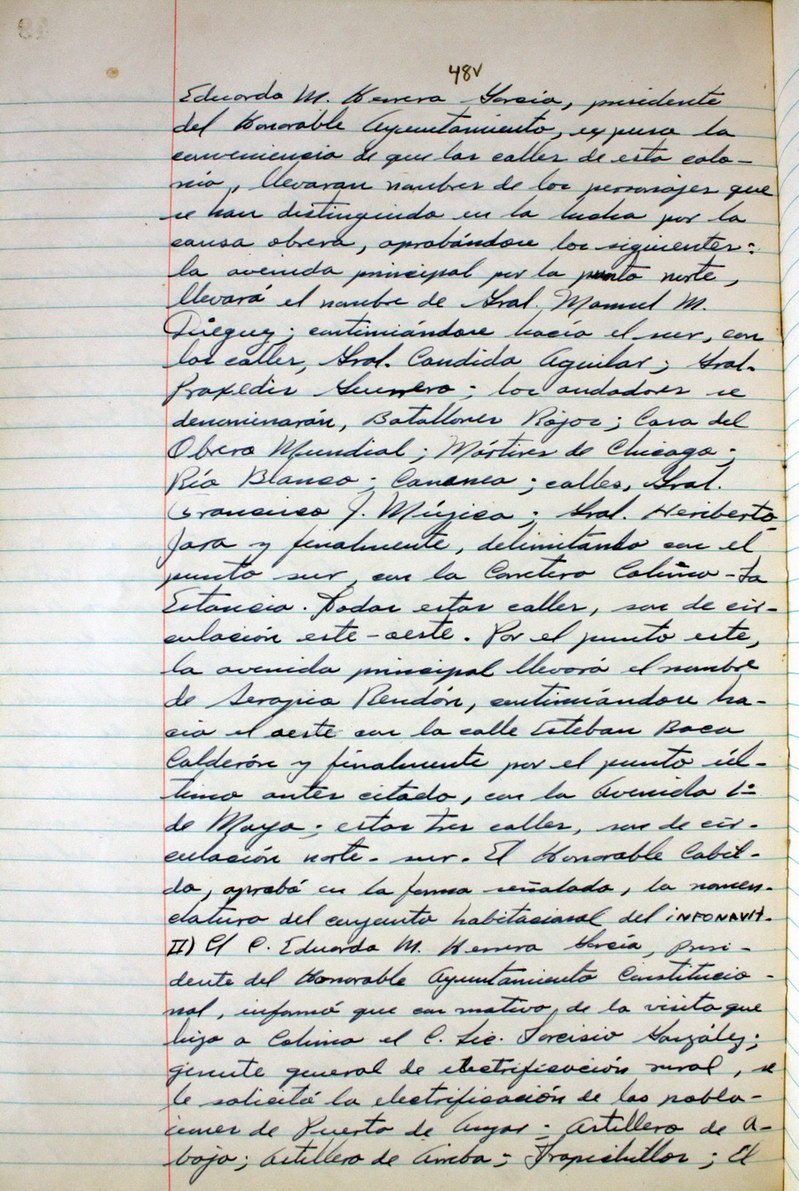 48v
Eduardo M. Herrera García, presidente
del Honorable Ayuntamiento, expuso la
conveniencia de que las calles de esta colo-
nia, llevaran nombres de los personajes que
se han distinguido en la lucha por la
causa obrera, aprobándose los siguientes:
la avenida principal por la punto norte,
llevará el nombre de Gral. Manuel M.
Diéguez; continuándose hacia el sur, con
las calles, Gral. Candido Aguilar; Gral.
Praxedis Guerrero; los andadores se
denominarán, Batallones Rojos; Casa del
Obrero Mundial; Mártires de Chicago;
Río Blanco; Cananea; calles, Gral.
Francisco J. Múgica; Gral. Heriberto
Jara y finalmente, delimitando con el
punto sur, con la Carretera Colima-La
Estancia. Todas estas calles, son de cir-
culación este-oeste. Por el punto este,
la avenida principal llevará el nombre
de Serapio Rendón, continuándose ha-
cia el oeste con la calle Esteban Baca
Calderón y finalmente por el punto úl-
timo antes citado, con la Avenida 1º
de Mayo; estas tres calles, son de cir-
culación norte-sur. El Honorable Cabil-
do, aprobó en la forma señalada, la nomen-
clatura del conjunto habitacional del INFONAVIT.
II) El C. Eduardo M. Herrera García, Presi-
dente del Honorable Ayuntamiento Constitucio-
nal, informó que con motivo de la visita que
hizo a Colima el C. Lic. Tarcisio González;
gerente general de electrificación rural, se
le solicitó la electrificación de las pobla-
ciones de Puerto de Anzar; Astillero de A-
bajo; Astillero de Arriba; Trapichillos; El